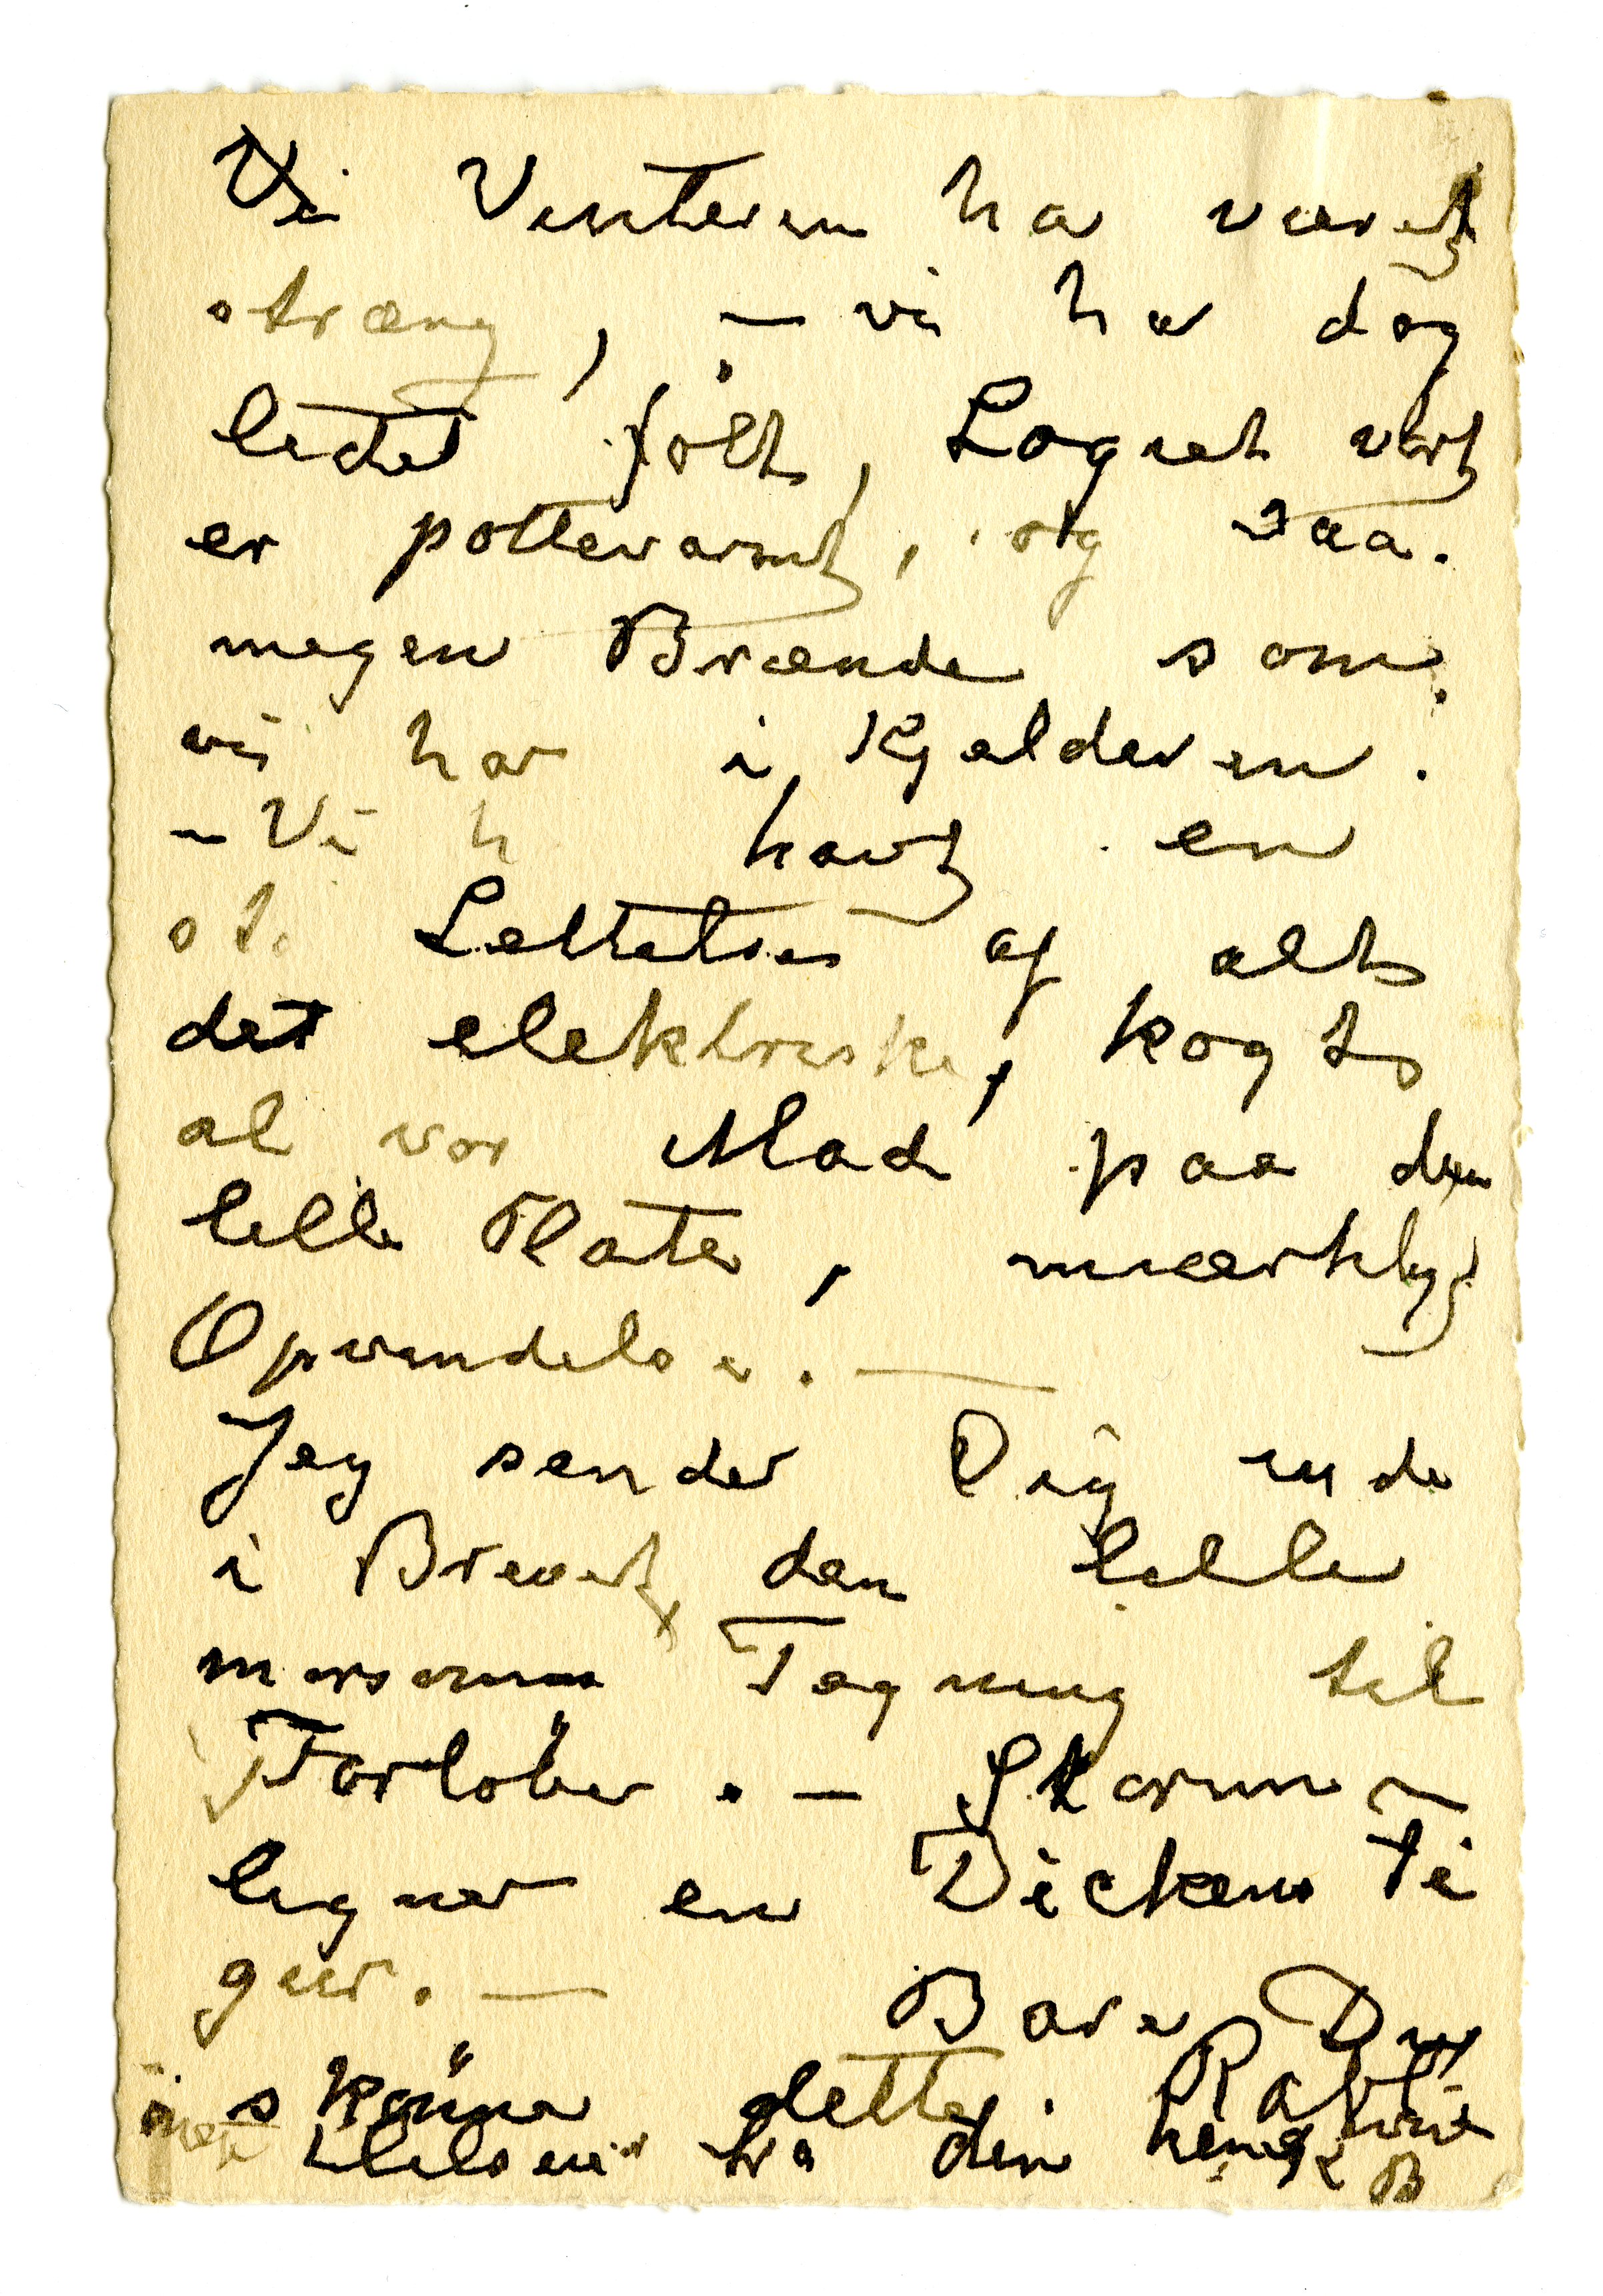 Vi Vinteren har været
stræng, – vi har dog
lidet følt, Logiet vort
er pottevarmt, og saa
megen Brænde som
vi har i Kjælderen.
– Vi h havt en
st. Lettelse af alt
det elektriske, kogt
al vor Mad paa den
lille Plate, mærklig
Opvindelse. —
Jeg sender Dig inde
i Brevet den lille
morsomme Tegning til
Forløber. –
ligner en Dickens fi
guer. — Bare Du
skønner dette.
Hilsen fra din B